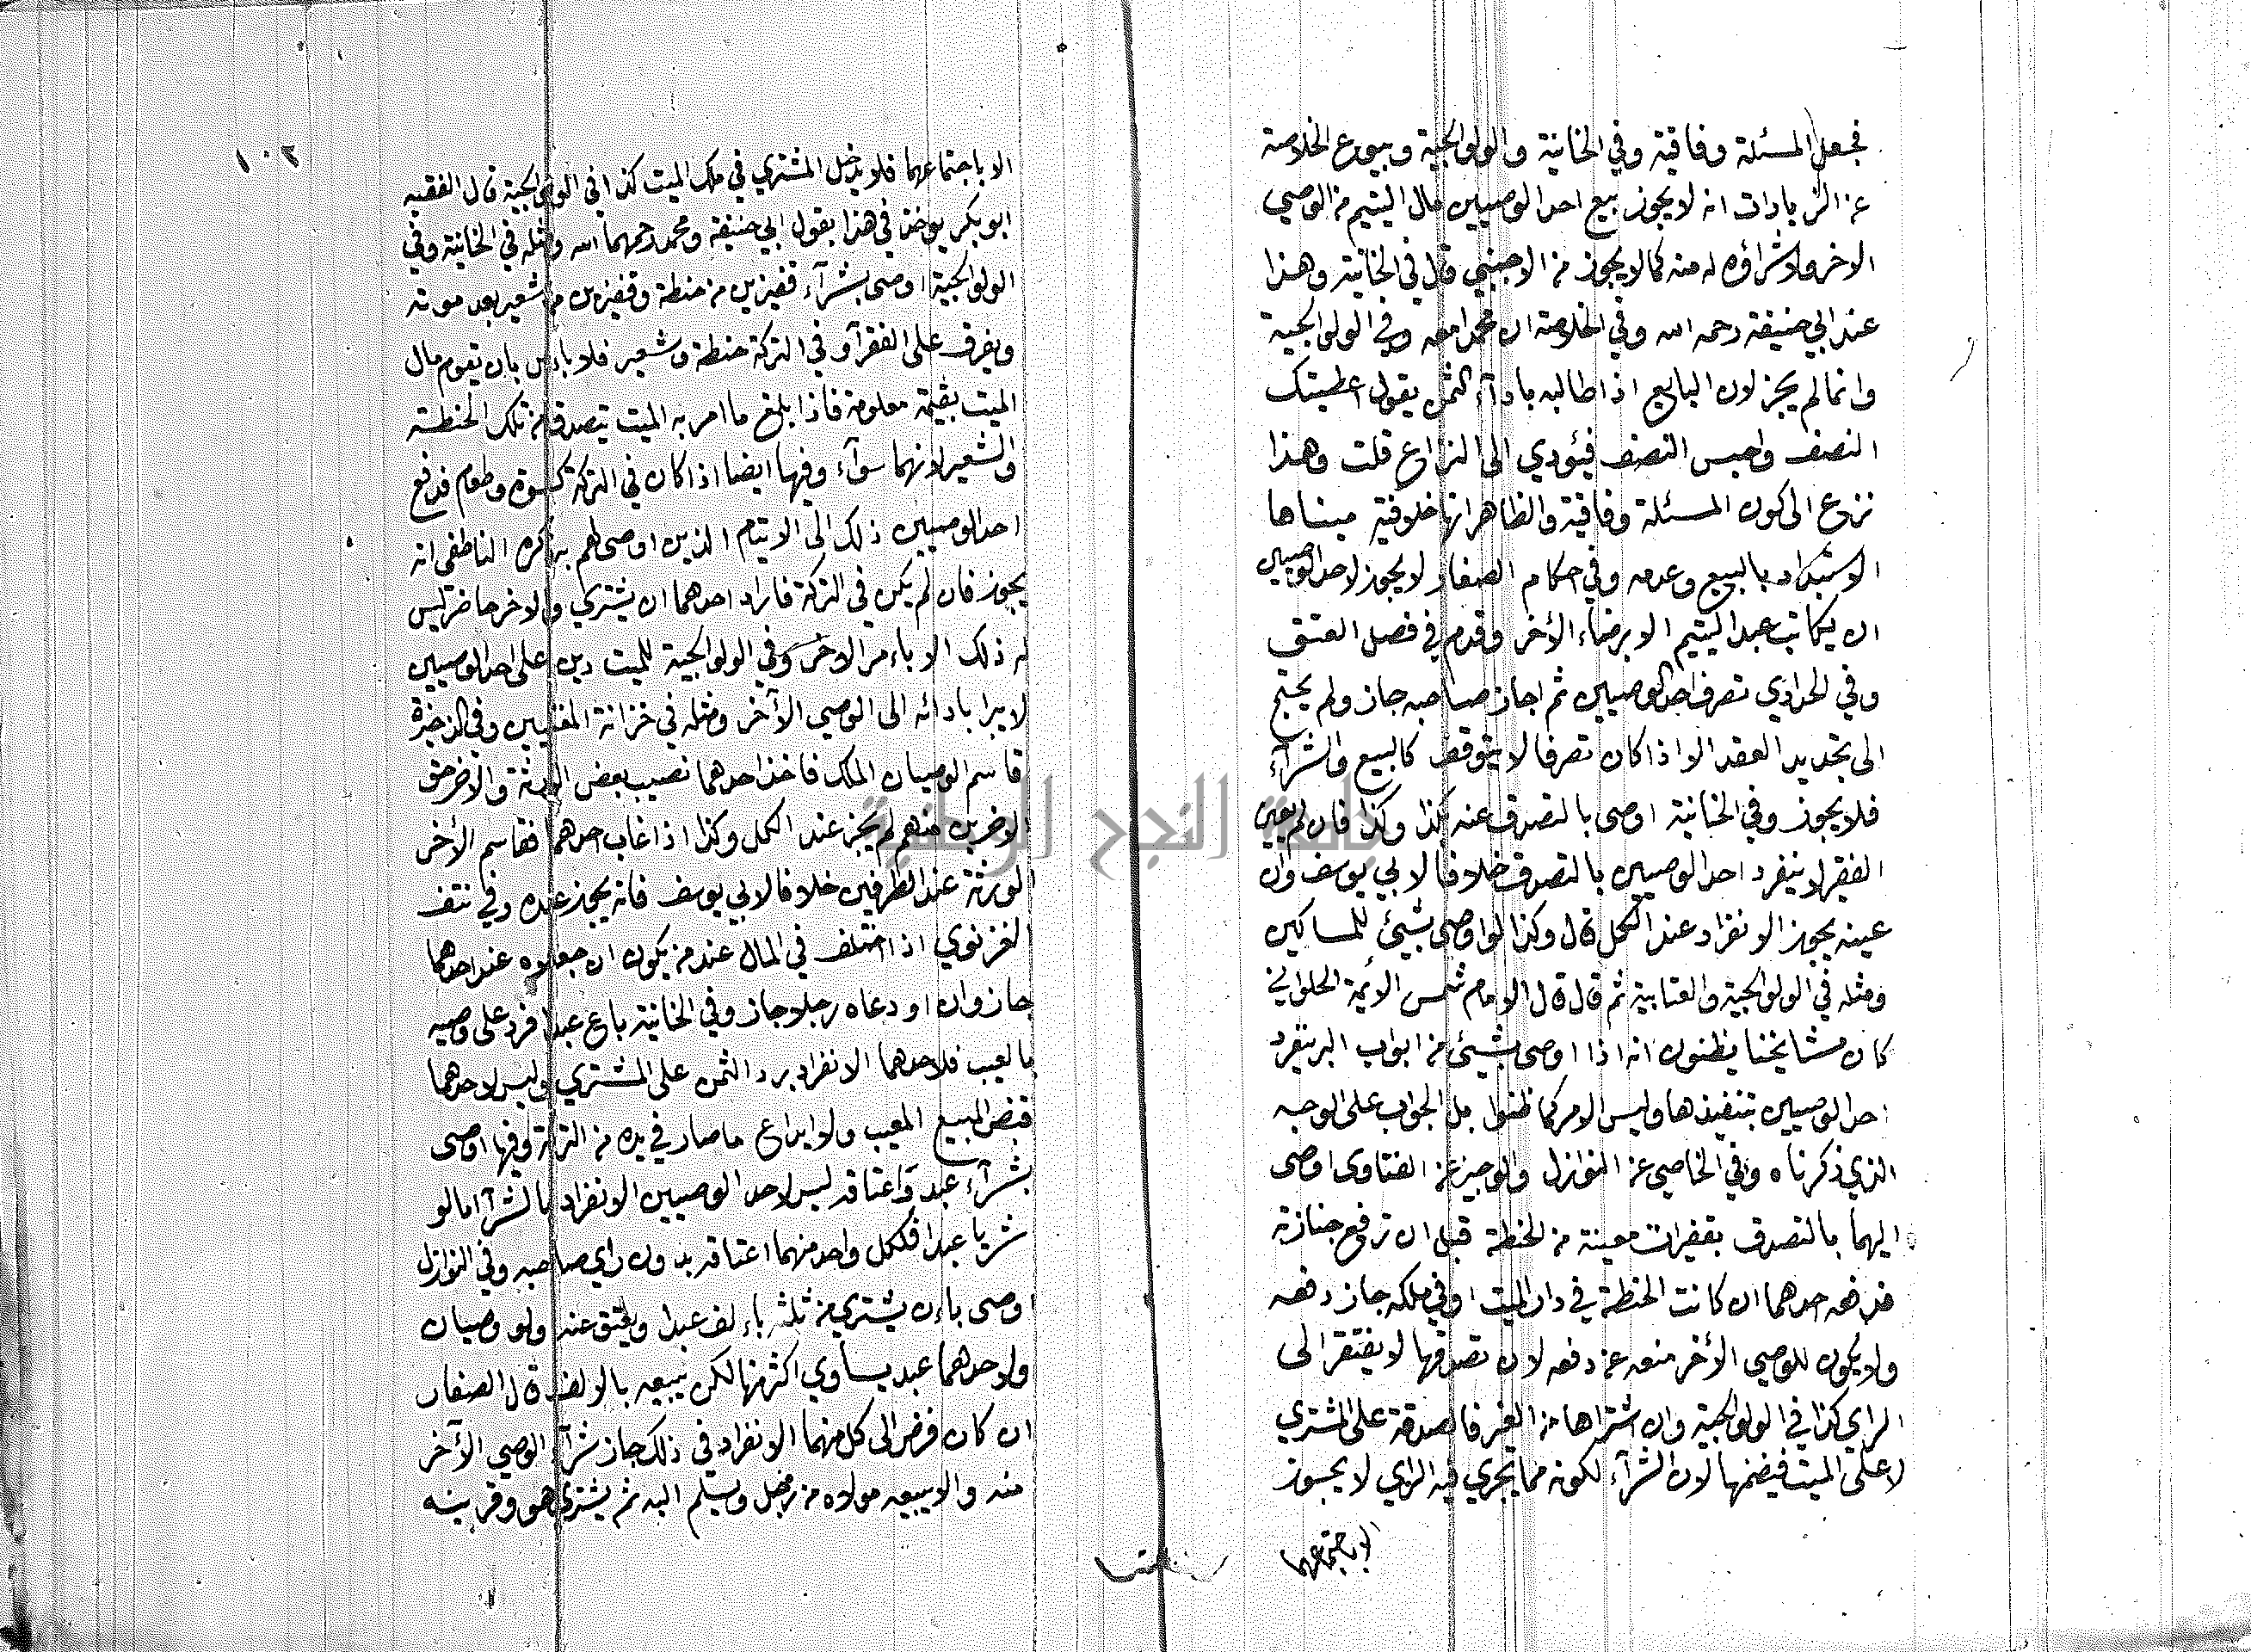 فجعل المسئلة وفاقية وفي الخانية والولوالجية وبيوع الخلاصة
عن الزيادات انه لا يجوز بيع احد الوصيين مال اليتيم من الوصي
الاخر ولا شراؤه له منه كما لا يجوز من الاجنبي قال في الخانية وهذا
عند ابي حنيفة رحمه الله وفي الخلاصة ان محمدا معه وفي الولوالجية
وانما لم يجز لان البايع اذا طالبه باداء الثمن يقول اعطيتك
النصف واحبس النصف فيؤدي الى النزاع قلت وهذا
نزوع الى كون المسئلة وفاقية والظاهر انها خلافية مبناها
الاستبداد بالبيع وعدمه وفي احكام الصغار لا يجوز لاحد الوصيين
ان يكاتب عبد اليتيم الا برضاء الأخر وقدم في فصل العتق
وفي الحدادي تصرف احد الوصيين ثم اجاز صاحبه جاز ولم يحتج
الى تجديد العقد الا اذا كان تصرفا لا يتوقف كالبيع والشرآء
فلا يجوز وفي الخانية اوصى بالتصدق عنه بكذا وكذا فان لم يعين
الفقير لا ينفرد احد الوصيين بالتصدق خلافا لابي يوسف وان
عينه يجوز الانفراد عند الكل قال وكذا لو اوصى بشيئ للمساكين
ومثله في الولوالجية والعتابية ثم قال قال الامام شمس الأئمة الحلواني
كان مشايخنا يظنون انه اذا اوصى بشيئ من ابواب البر ينفرد
احد الوصيين بتنفيذها وليس الامر كما ظنوا بل الجواب على الوجه
الذي ذكرناه وفي الخاصي عن النوازل والوجيز عن الفتاوى اوصى
اليهما بالتصدق بقفيزات معينة من الحنطة قبل ان ترفع جنازته
فدفعه احدهما ان كانت الحنطة في دار الميت او في ملكه جاز دفعه
ولا يكون للوصي الأخر منعه عن دفعه لان تصدقها لا يفتقر الى
الراي كذا في الولوالجية وان اشتراها من الغير فالصدقة على المشتري
لا على الميت فيضمنها لان الشرآء لكونه مما يجري فيه الراي لا يجوز
الا باجتماعهما
١٠٢
الا باجتماعهما فلا يدخل المشتري في ملك الميت كذا في الولوالجية قال الفقيه
ابو بكر يوخذ في هذا بقول ابي حنيفة ومحمد رحمهما الله ومثله في الخانية وفي
الولوالجية اوصى بشرآء قفيزين من حنطة وقفيزين من شعير بعد موته
ويفرق على الفقرآء وفي التركة حنطة وشعير فلا باس بان يقوم مال
الميت بقيمة معلومة فاذا بلغ ما امر به الميت يتصدق من تلك الحنطة
والشعير لانهما سوآء وفيها ايضا اذا كان في التركة كسوة وطعام فدفع
احد الوصيين ذلك الى الايتام الذين اوصى لهم به ذكره الناطفي انه
يجوز فان لم يكن في التركة فاراد احدهما ان يشتري والاخر حاضر ليس
له ذلك الا باءمر الاخر وفي الولوالجية للميت دين على احد الوصيين
لا يبرا بادائه الى الوصي الأخر ومثله في خزانة المفتيين وفي الذخيرة
قاسم الوصيان الملك فاخذ احدهما نصيب بعض الورثة والاخر حق
الاخرين منهم لم يجز عند الكل وكذا اذا غاب احدهما فقاسم الأخر
الورثة عند الطرفين خلافا لابي يوسف فانه يجوز عنده وفي نتف
الغزنوي اذا اختلف في المال عند من يكون ان جعلاه عند احدهما
جاز وان اودعاه رجلا جاز وفي الخانية باع عبدا فرد على وصيه
بالعيب فلاحدهما الانفراد برد الثمن على المشتري وليس لاحدهما
قبض المبيع المعيب ولا ايداع ما صار في يده من التركة وفيها اوصى
بشرآء عبد واعتاقه ليس لاحد الوصيين الانفراد بالشرآء اما لو
شريا عبدا فلكل واحد منهما اعتاقه بدون راي صاحبه وفي النوازل
اوصى باءن يشتري من ثلثه باءلف عبدا ويعتق عنه وله وصيان
ولاحدهما عبد يساوي اكثر منها لكن يبيعه بالالف قال الصفار
ان كان فوض الى كل منهما الانفراد في ذلك جاز شرآء الوصي الأخر
منه والا يبيعه مولاه من رجل ويسلم اليه ثم يشتري هو وقرينه